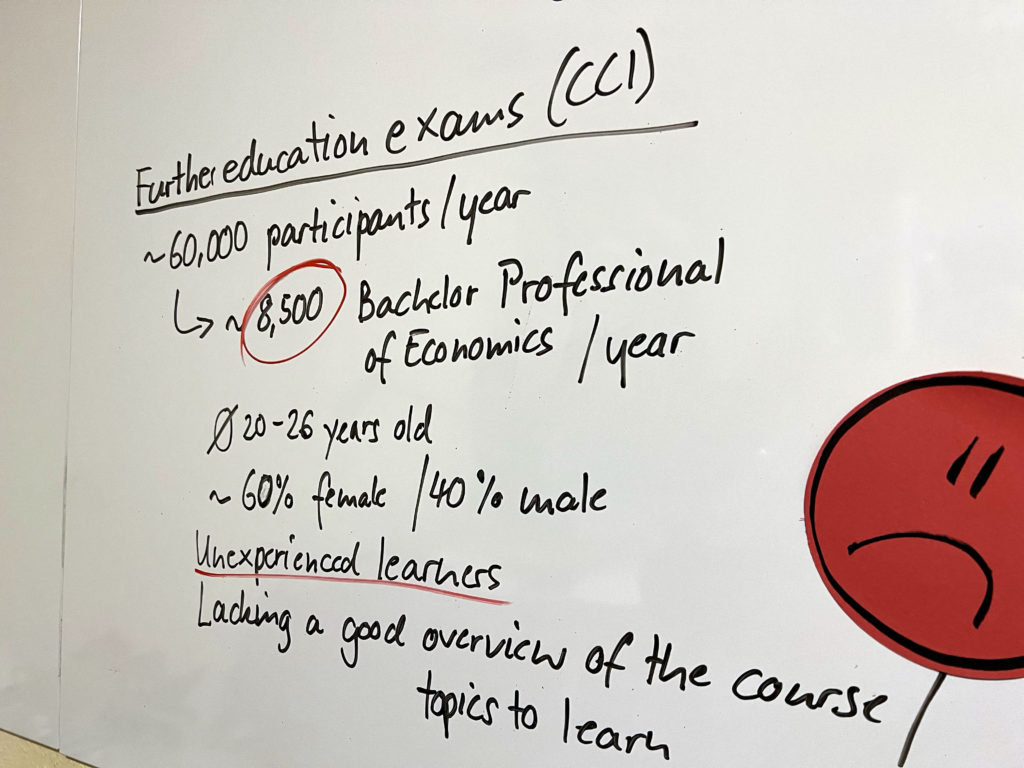 Further education exams (CCI)
~60,000 participants/year
↳ ~ 8,500 Bachelor Professional
of Economics /year
Ø 20-26 years old
~ 60% female /40% male
Unexperienced learners
Lacking a good overview of the course
topics to learn